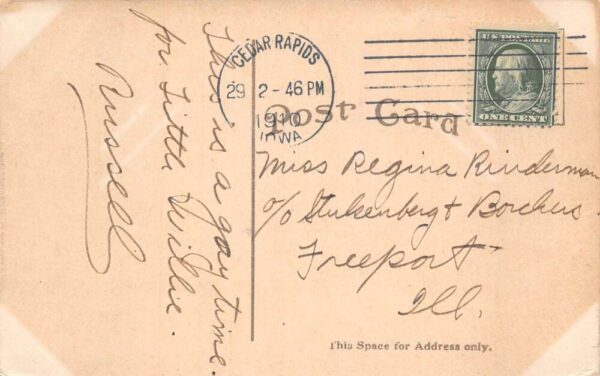 This is a gay time
for Little Willie.
Russell
CEDAR RAPIDS
29 2-46 PM
1910
IOWA
U.S. POSTAGE
ONE CENT
Post Card
Miss Regina Rinderman
c/o Stukenberg & Borchers
Freeport
Ill.
This Space for Address only.